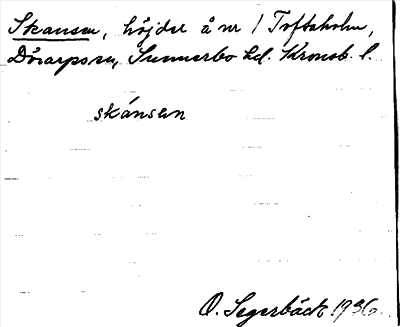 Skansen, höjder å nr 1 Toftaholm,
Dörarps sn, Sunnerbo hd. Kronob. l.
skánsen
O. Segerbäck 1936.